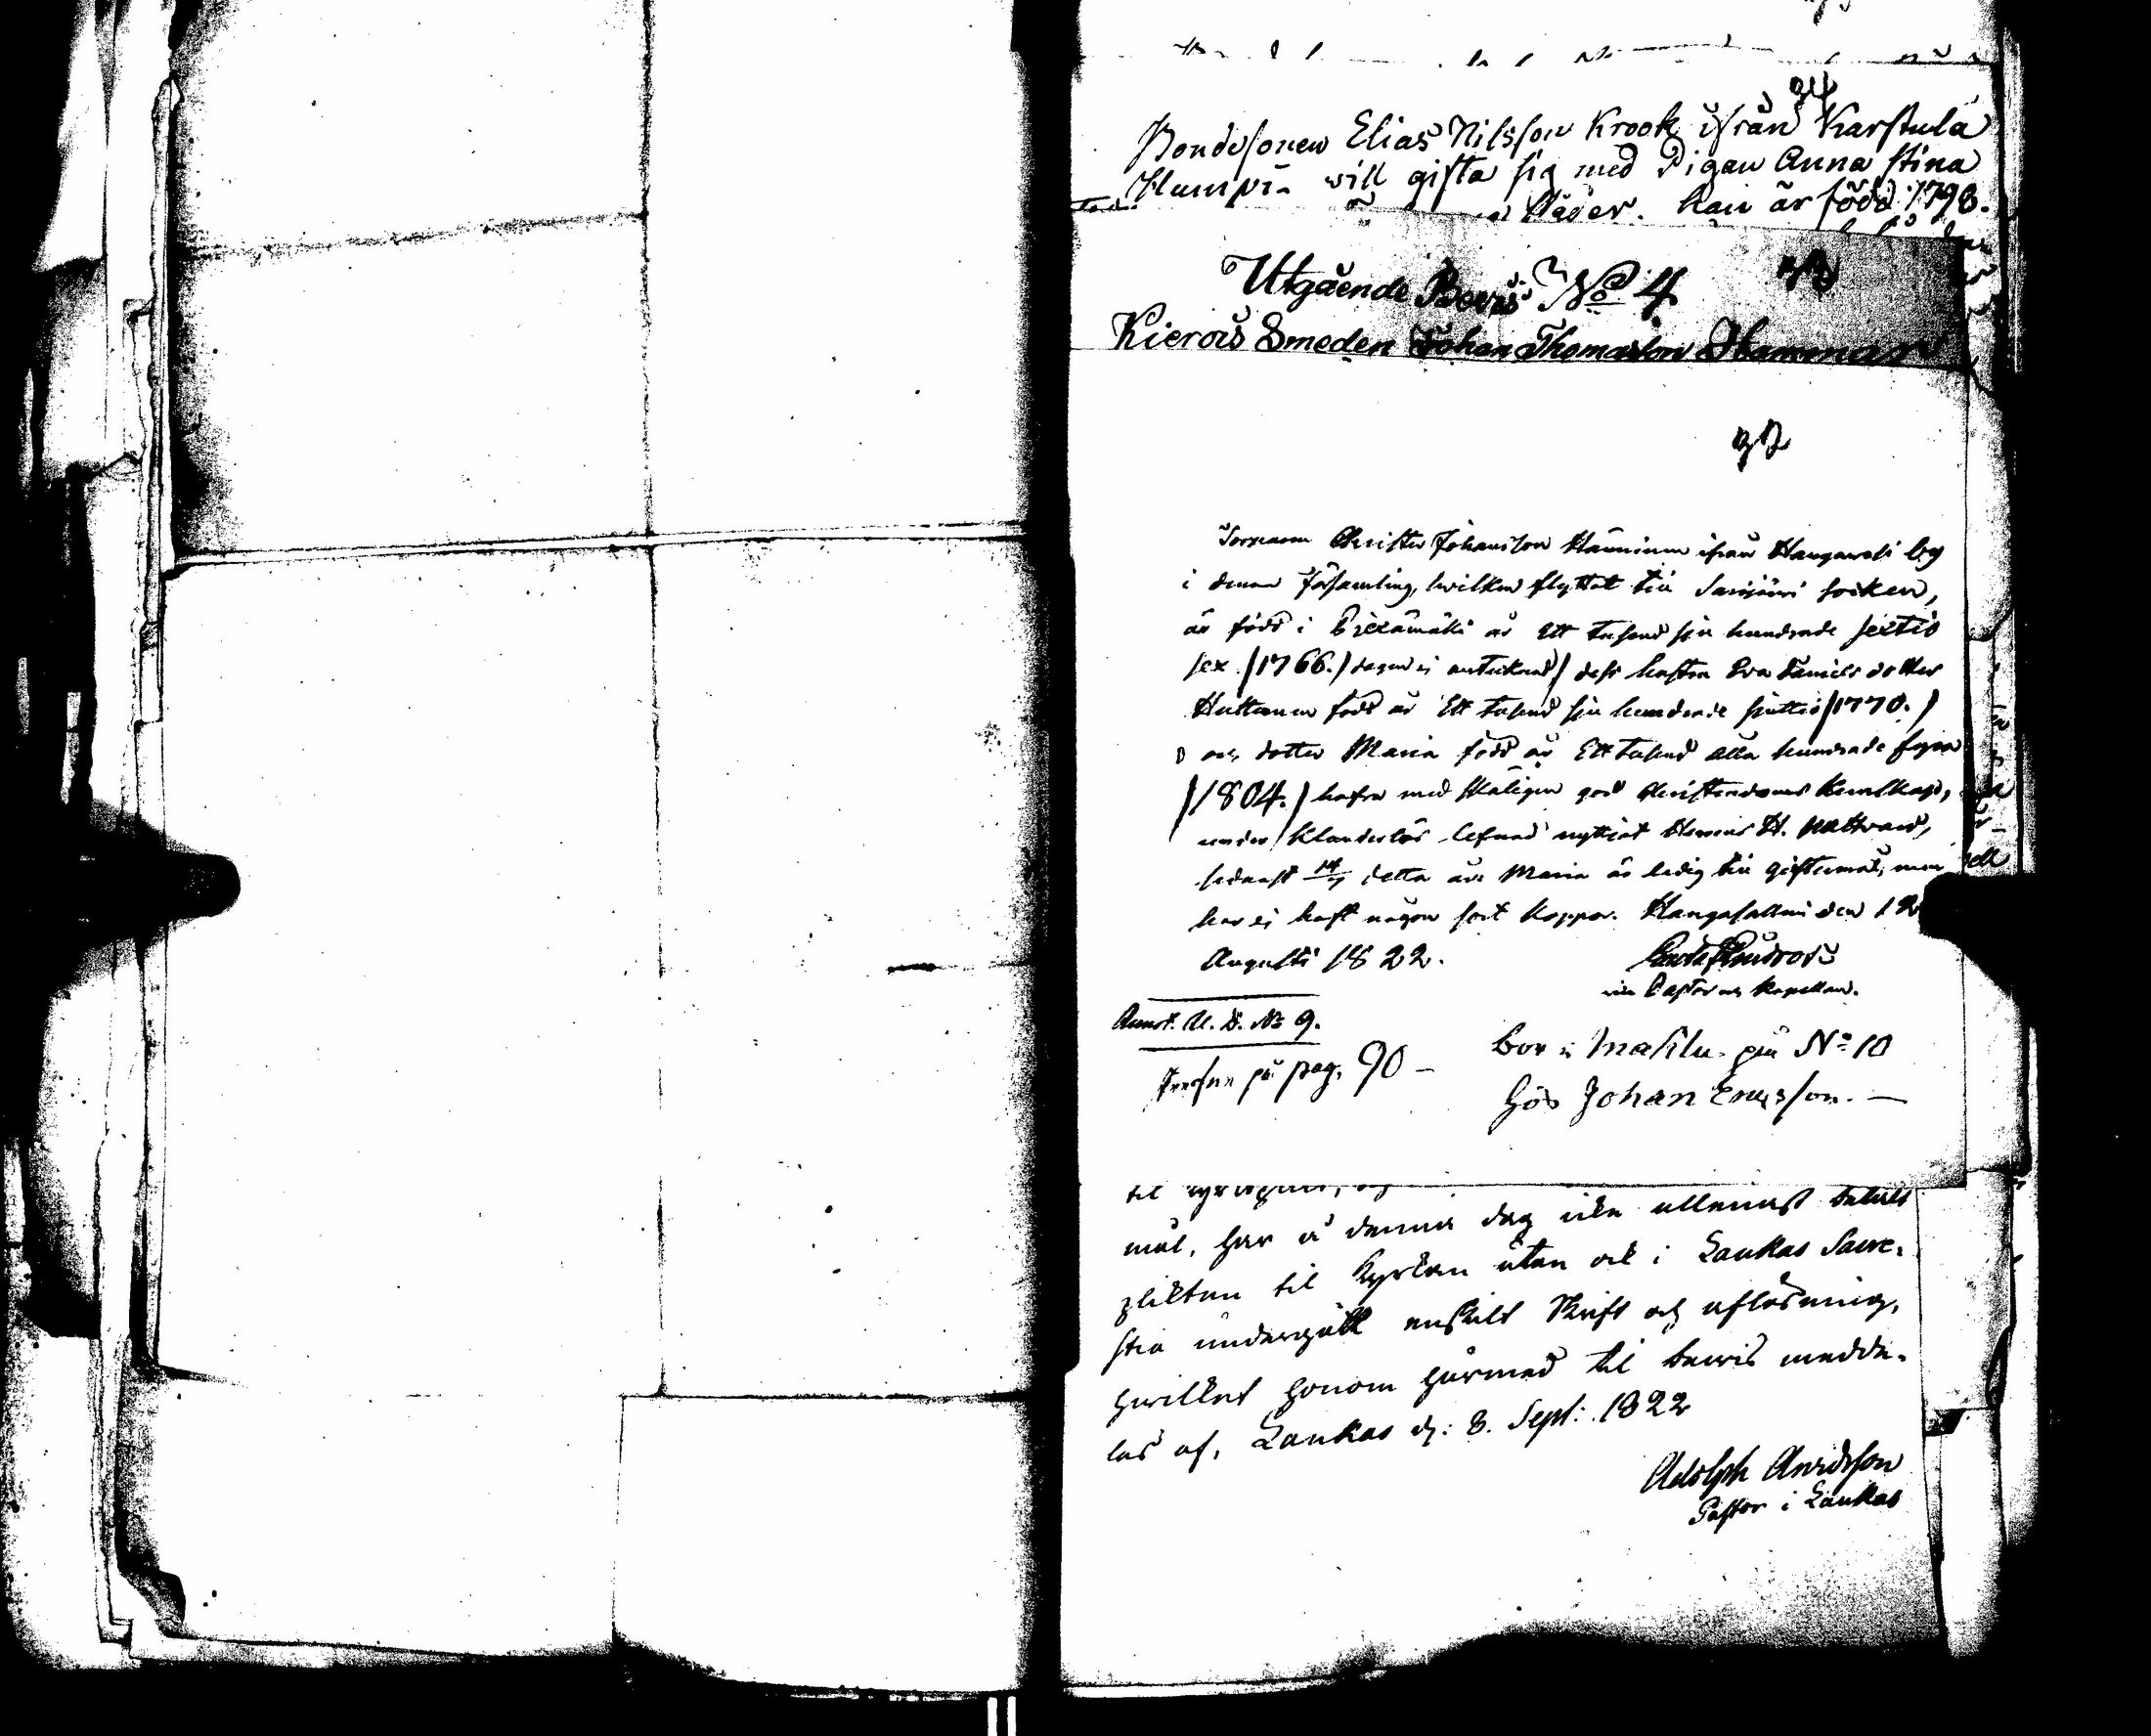 94
Bondesonen Elias Nilsson Krook ifrån Karstula
will gifta sig med Pigan Anna Stina
han är född 1798.
Utgående Bevis No 4
Kierois Smeden Johan Thomasson Hamman
92
Torparen Christer Johansson Hänninen ifrån Hangaveli by
i denna församling, hvilken flyttat till Sarijärvi socken,
är född i Piexämäki år Ett tusend sju hundrade sextio
sex /1766./ dagen ej antecknad/ dess hustru Eva Daniels dotter
Huttunen född år Ett tusend sju hundrade sjuttio /1770./
och dotter Maria född år Ett tusend åtta hundrade fyra
/1804./ hafva med skäligen god Christendoms kunskap,
under klanderlös lefnad nyttjat Herrens H. Nattvard,
sednast detta år. Maria är ledig till giftermål, men
har ej haft någon sort koppor. Hangasalmi den 12
Augusti 1822.
vice Pastor och Kapellan.
Annot. U. B. No 9.
på pag. 90 –
bor i Mahlu på No 10
hos Johan Ersson. —
til
mål, har å denna dag icke allenast betalt
plikten til Kyrkan utan ock i Laukas Sacre-
stia undergått enskilt Skrift och aflösning,
hvilket honom härmed til bewis medde-
las af, Laukas d: 8. Sept: 1822
Adolph Arvidsson
Pastor i Laukas